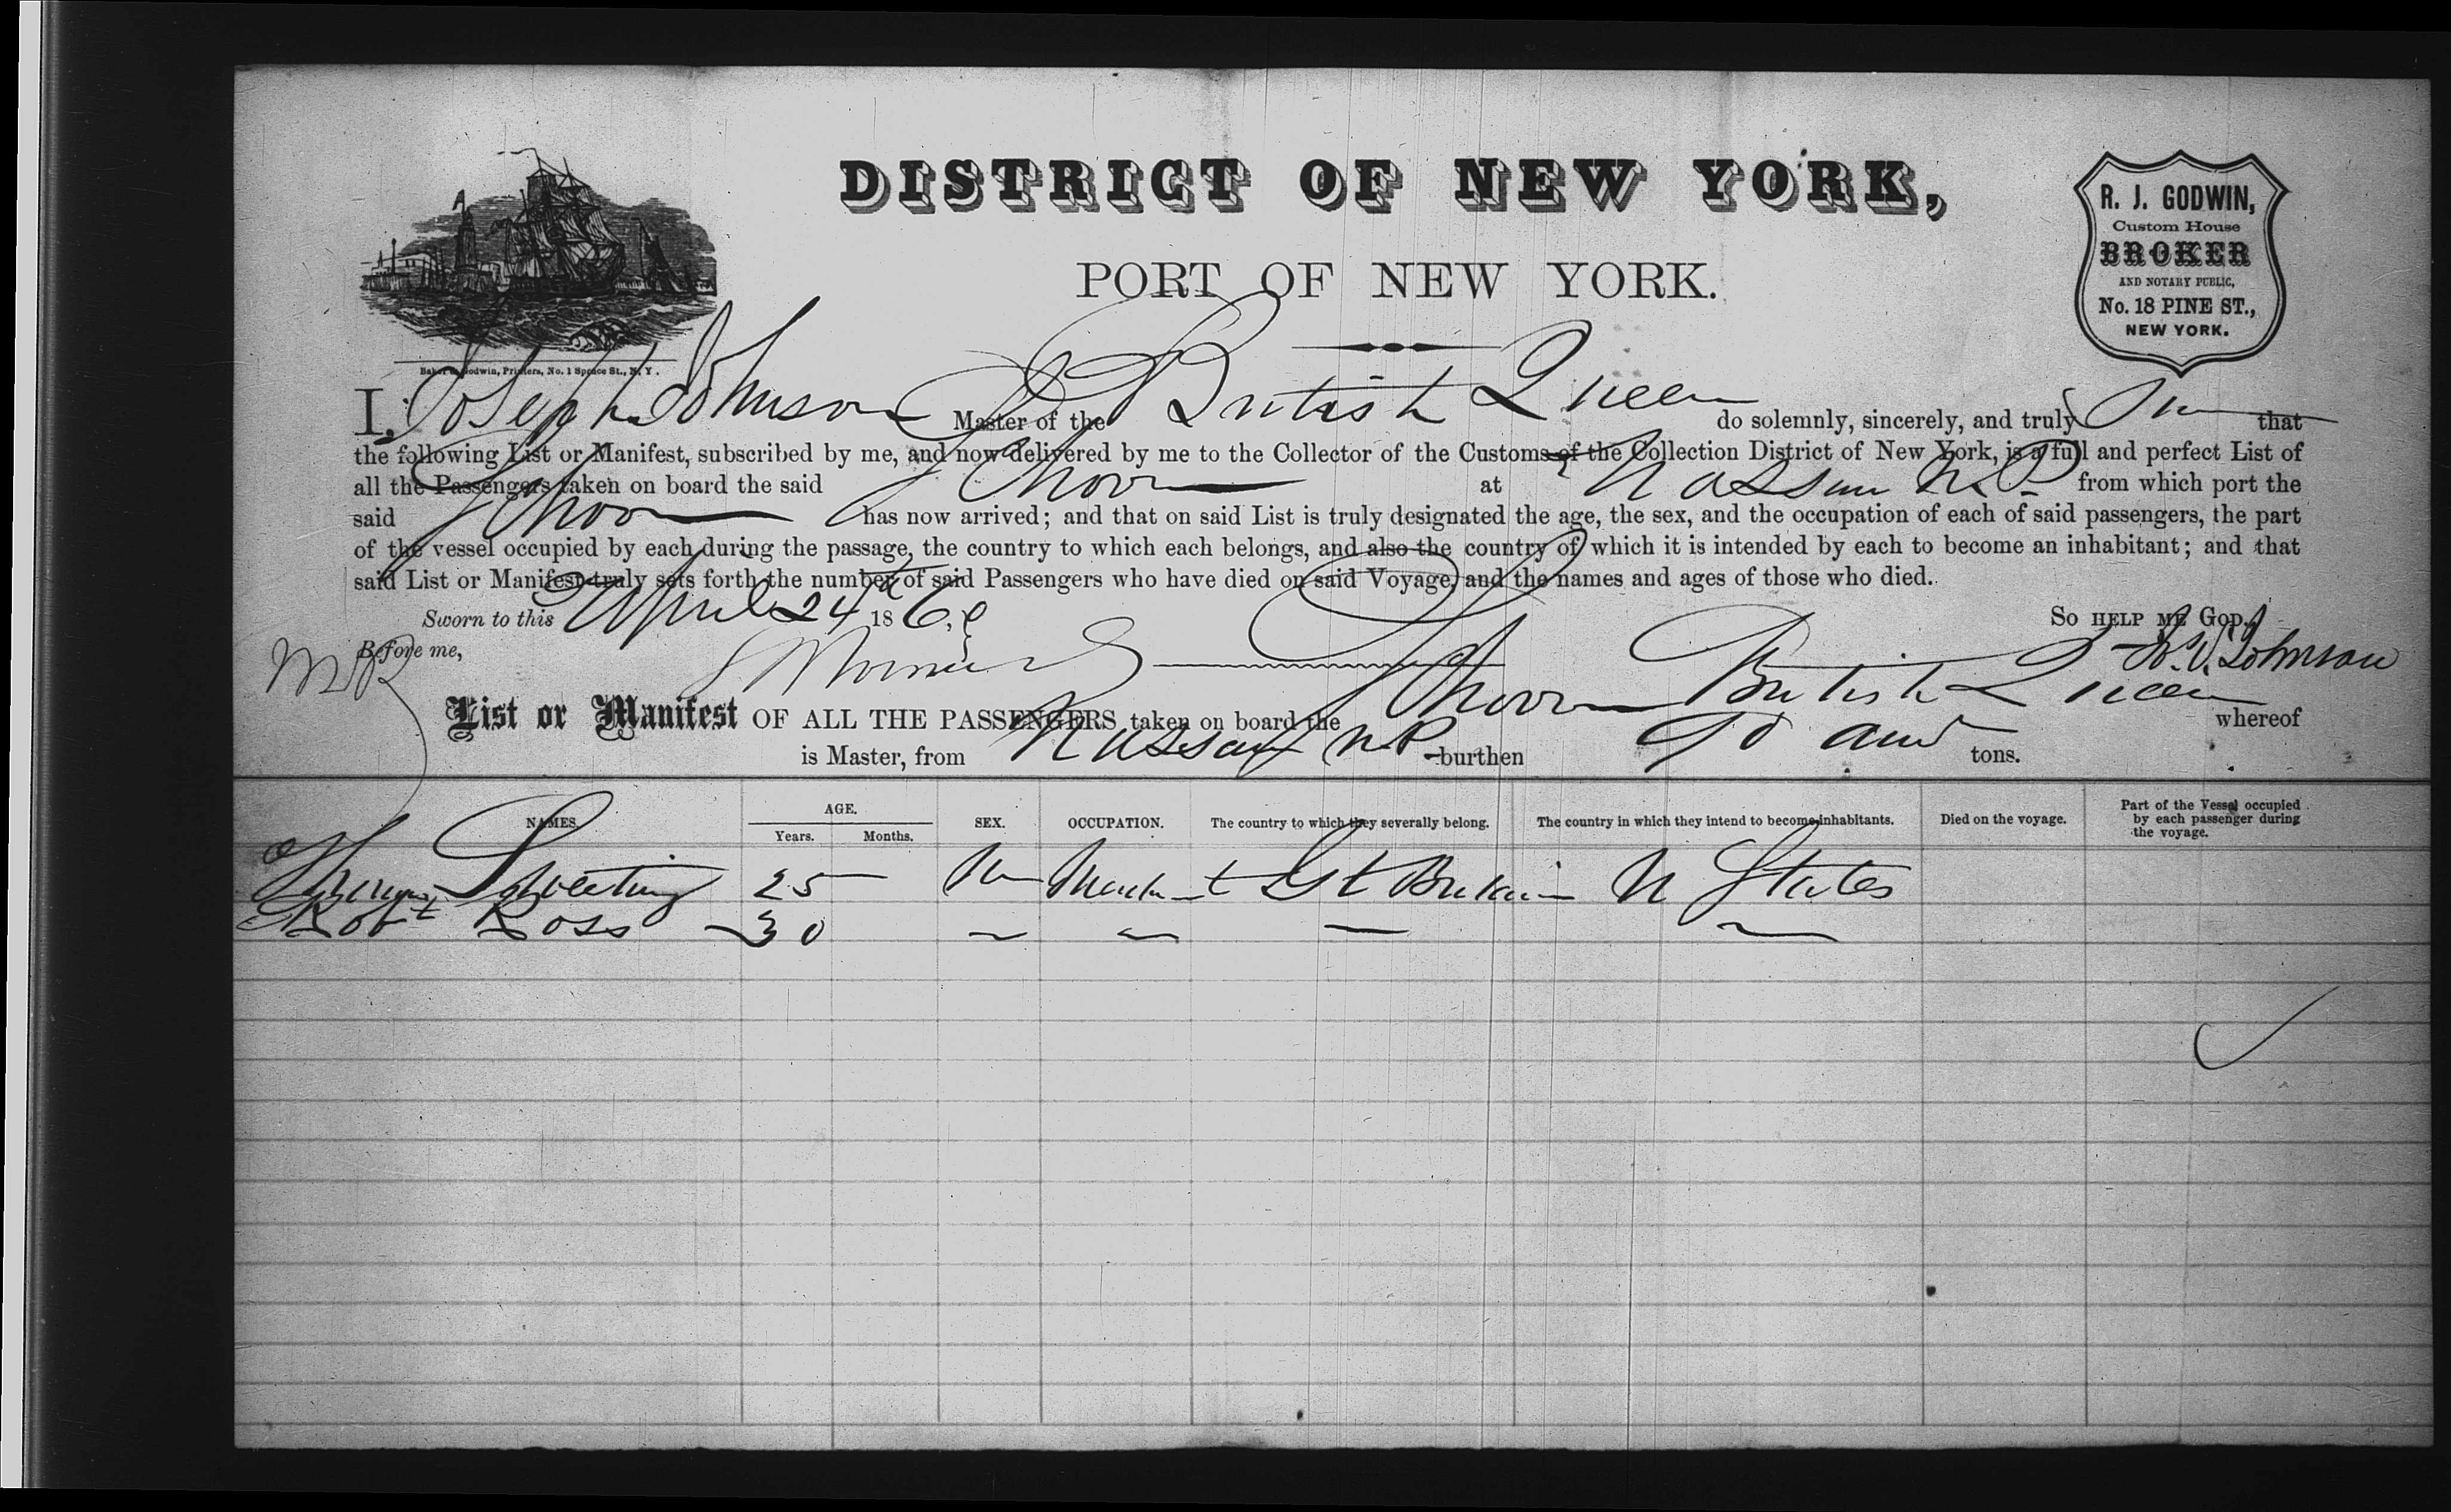 DISTRICT OF NEW YORK,
PORT OF NEW YORK.
R. J. GODWIN,
Custom House
BROKER
AND NOTARY PUBLIC,
No. 18 PINE ST.,
NEW YORK.
Baker & Godwin, Printers, No. 1 Spruce St., N. Y.
I, Joseph Johnson Master of the British Queen do solemnly, sincerely, and truly that
the following List or Manifest, subscribed by me, and now delivered by me to the Collector of the Customs of the Collection District of New York, is a full and perfect List of
all the Passengers taken on board the said Schoor at Nassau N.P. from which port the
said Schoor has now arrived; and that on said List is truly designated the age, the sex, and the occupation of each of said passengers, the part
of the vessel occupied by each during the passage, the country to which each belongs, and also the country of which it is intended by each to become an inhabitant; and that
said List or Manifest truly sets forth the number of said Passengers who have died on said Voyage, and the names and ages of those who died.
Sworn to this April 24th 186 So HELP ME GOD.
Before me, Johnson
List or Manifest OF ALL THE PASSENGERS taken on board the Schoor British Queen whereof
is Master, from Nassau N.P. burthen tons.
NAMES. AGE. Years. Months. SEX. OCCUPATION. The country to which they severally belong. The country in which they intend to become inhabitants. Died on the voyage. Part of the Vessel occupied by each passenger during the voyage.
Sweeting 25 M Mercht Gt Britain U States
Robt Ross 30